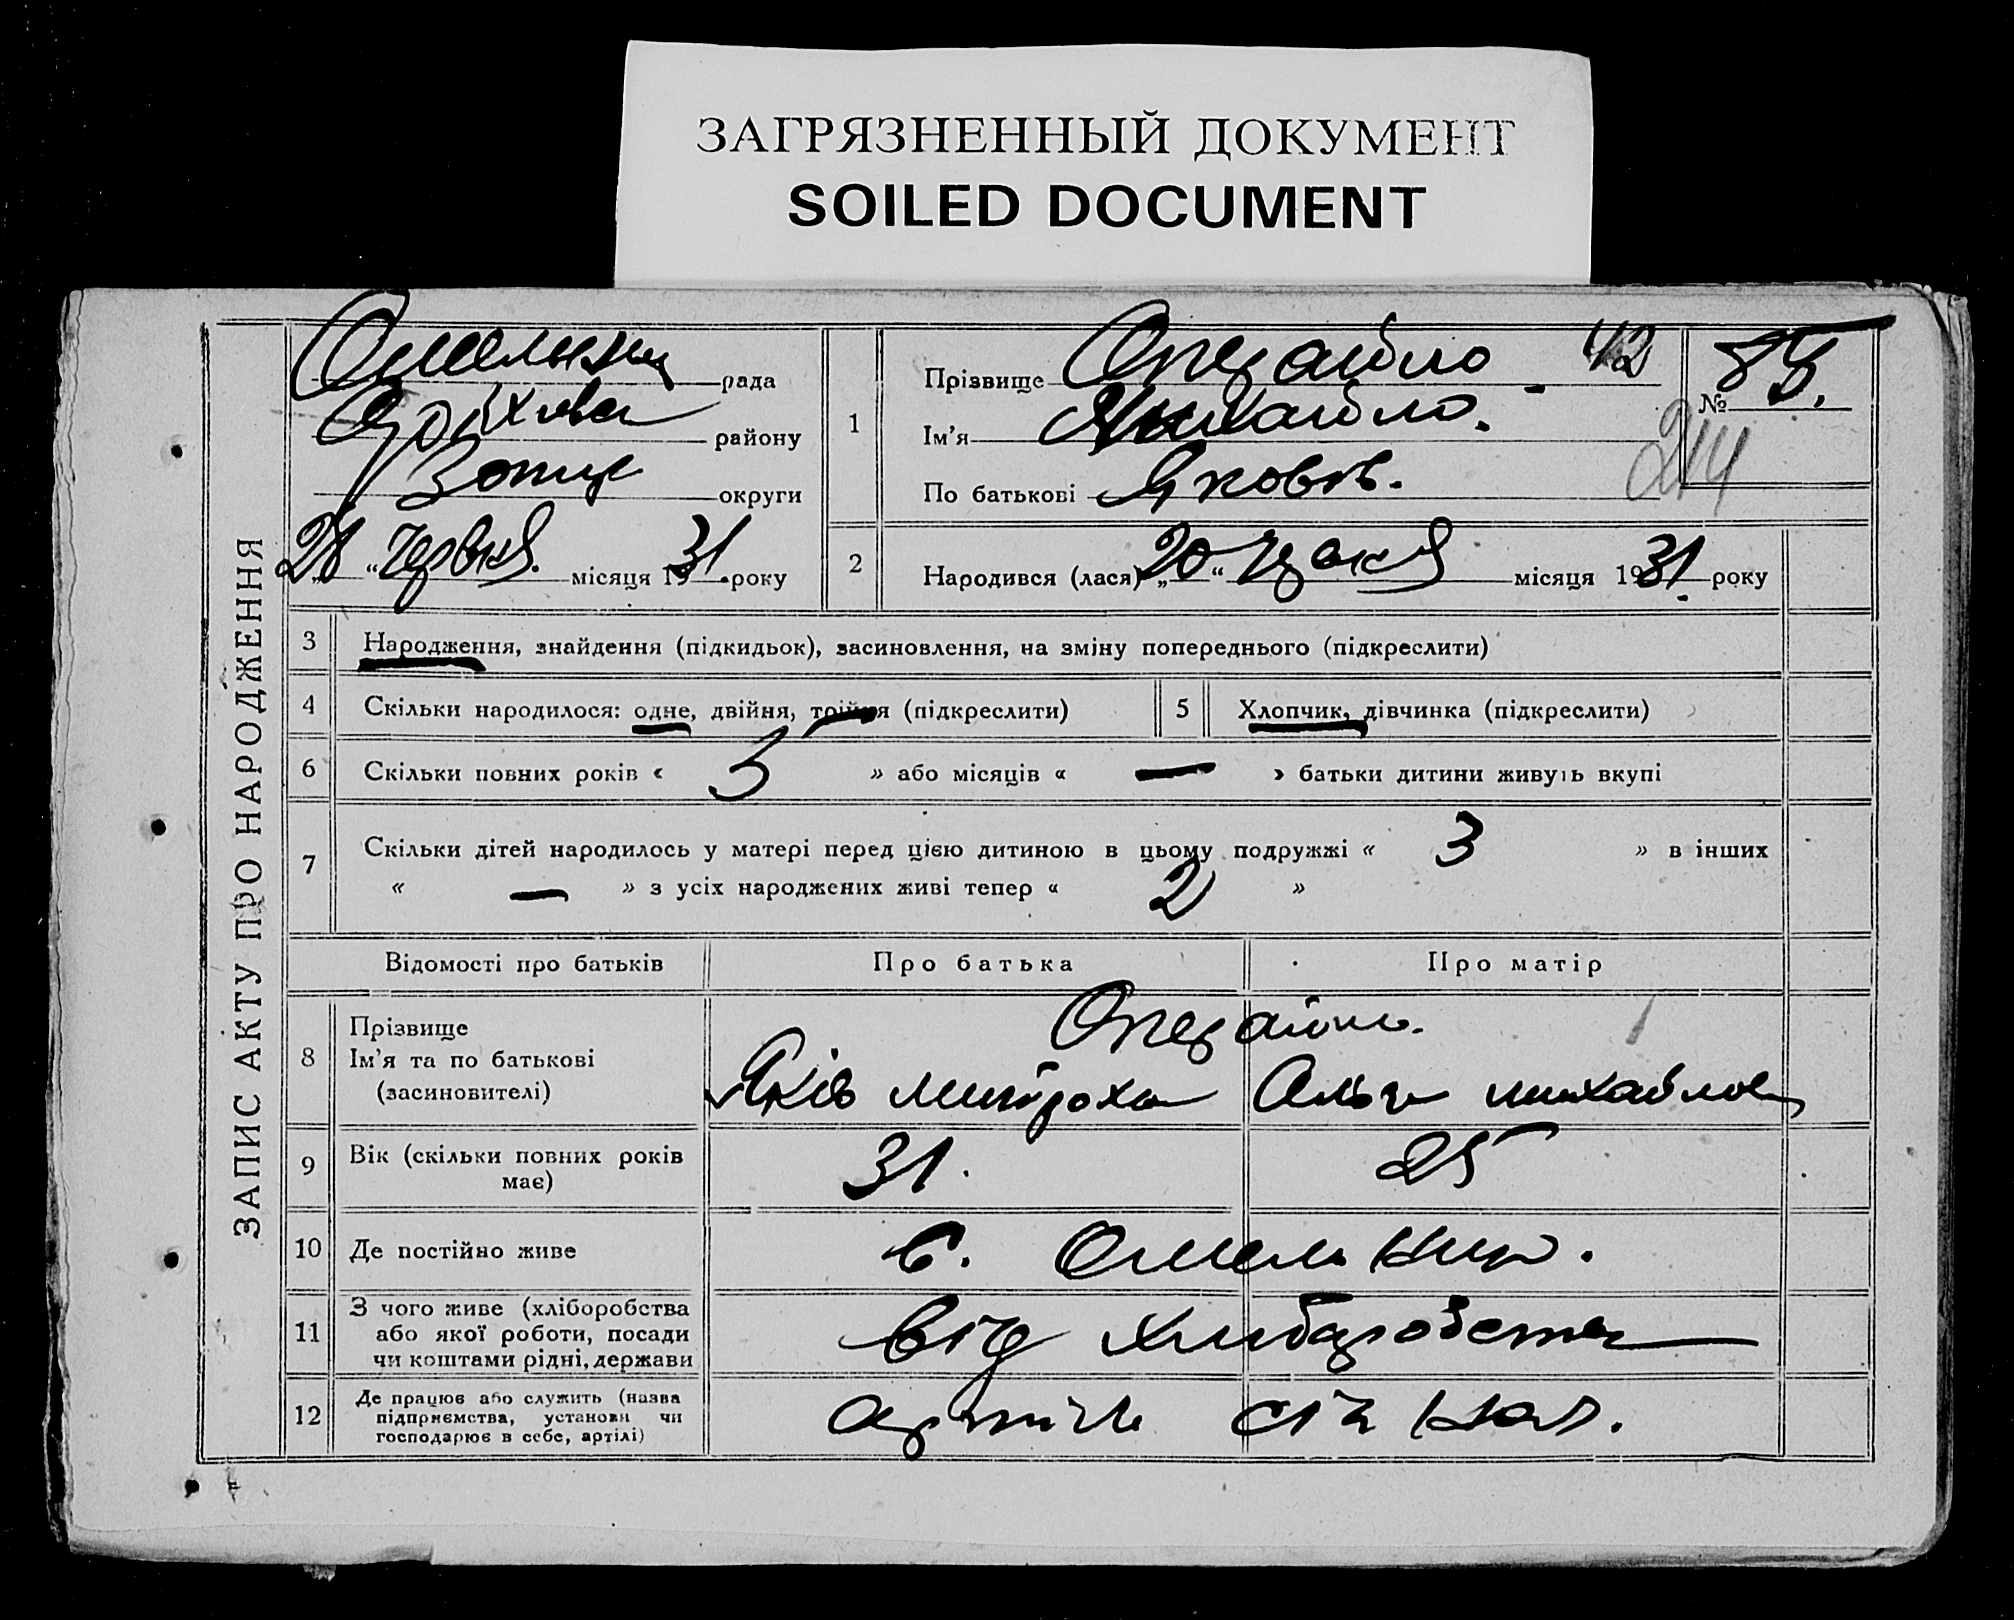 ЗАГРЯЗНЕННЫЙ ДОКУМЕНТ
SOILED DOCUMENT
ЗАПИС АКТУ ПРО НАРОДЖЕННЯ
рада
району
округи
28 " червня. місяця 1931. року
1
Прізвище 42
Ім'я Михайло.
По батькові Яковів.
№ 85.
214
2
Народився (лася) „20" червня місяця 1931. року
3 Народження, знайдення (підкидьок), засиновлення, на зміну попереднього (підкреслити)
4 Скільки народилося: одне, двійня, трійня (підкреслити)
5 Хлопчик, дівчинка (підкреслити)
6 Скільки повних років « 5 » або місяців « — » батьки дитини живуть вкупі
7 Скільки дітей народилось у матері перед цією дитиною в цьому подружжі « 3 » в інших
« — » з усіх народжених живі тепер « 2 »
Відомості про батьків Про батька Про матір
8 Прізвище
Ім'я та по батькові
(засиновителі)
Яків Митроха Ольга Михайлов
9 Вік (скільки повних років має) 31. 25
10 Де постійно живе с. Омельник.
11 З чого живе (хліборобства
або якої роботи, посади
чи коштами рідні, держави
від хліборобства
12 Де працює або служить (назва
підприємства, установи чи
господарює в себе, артілі)